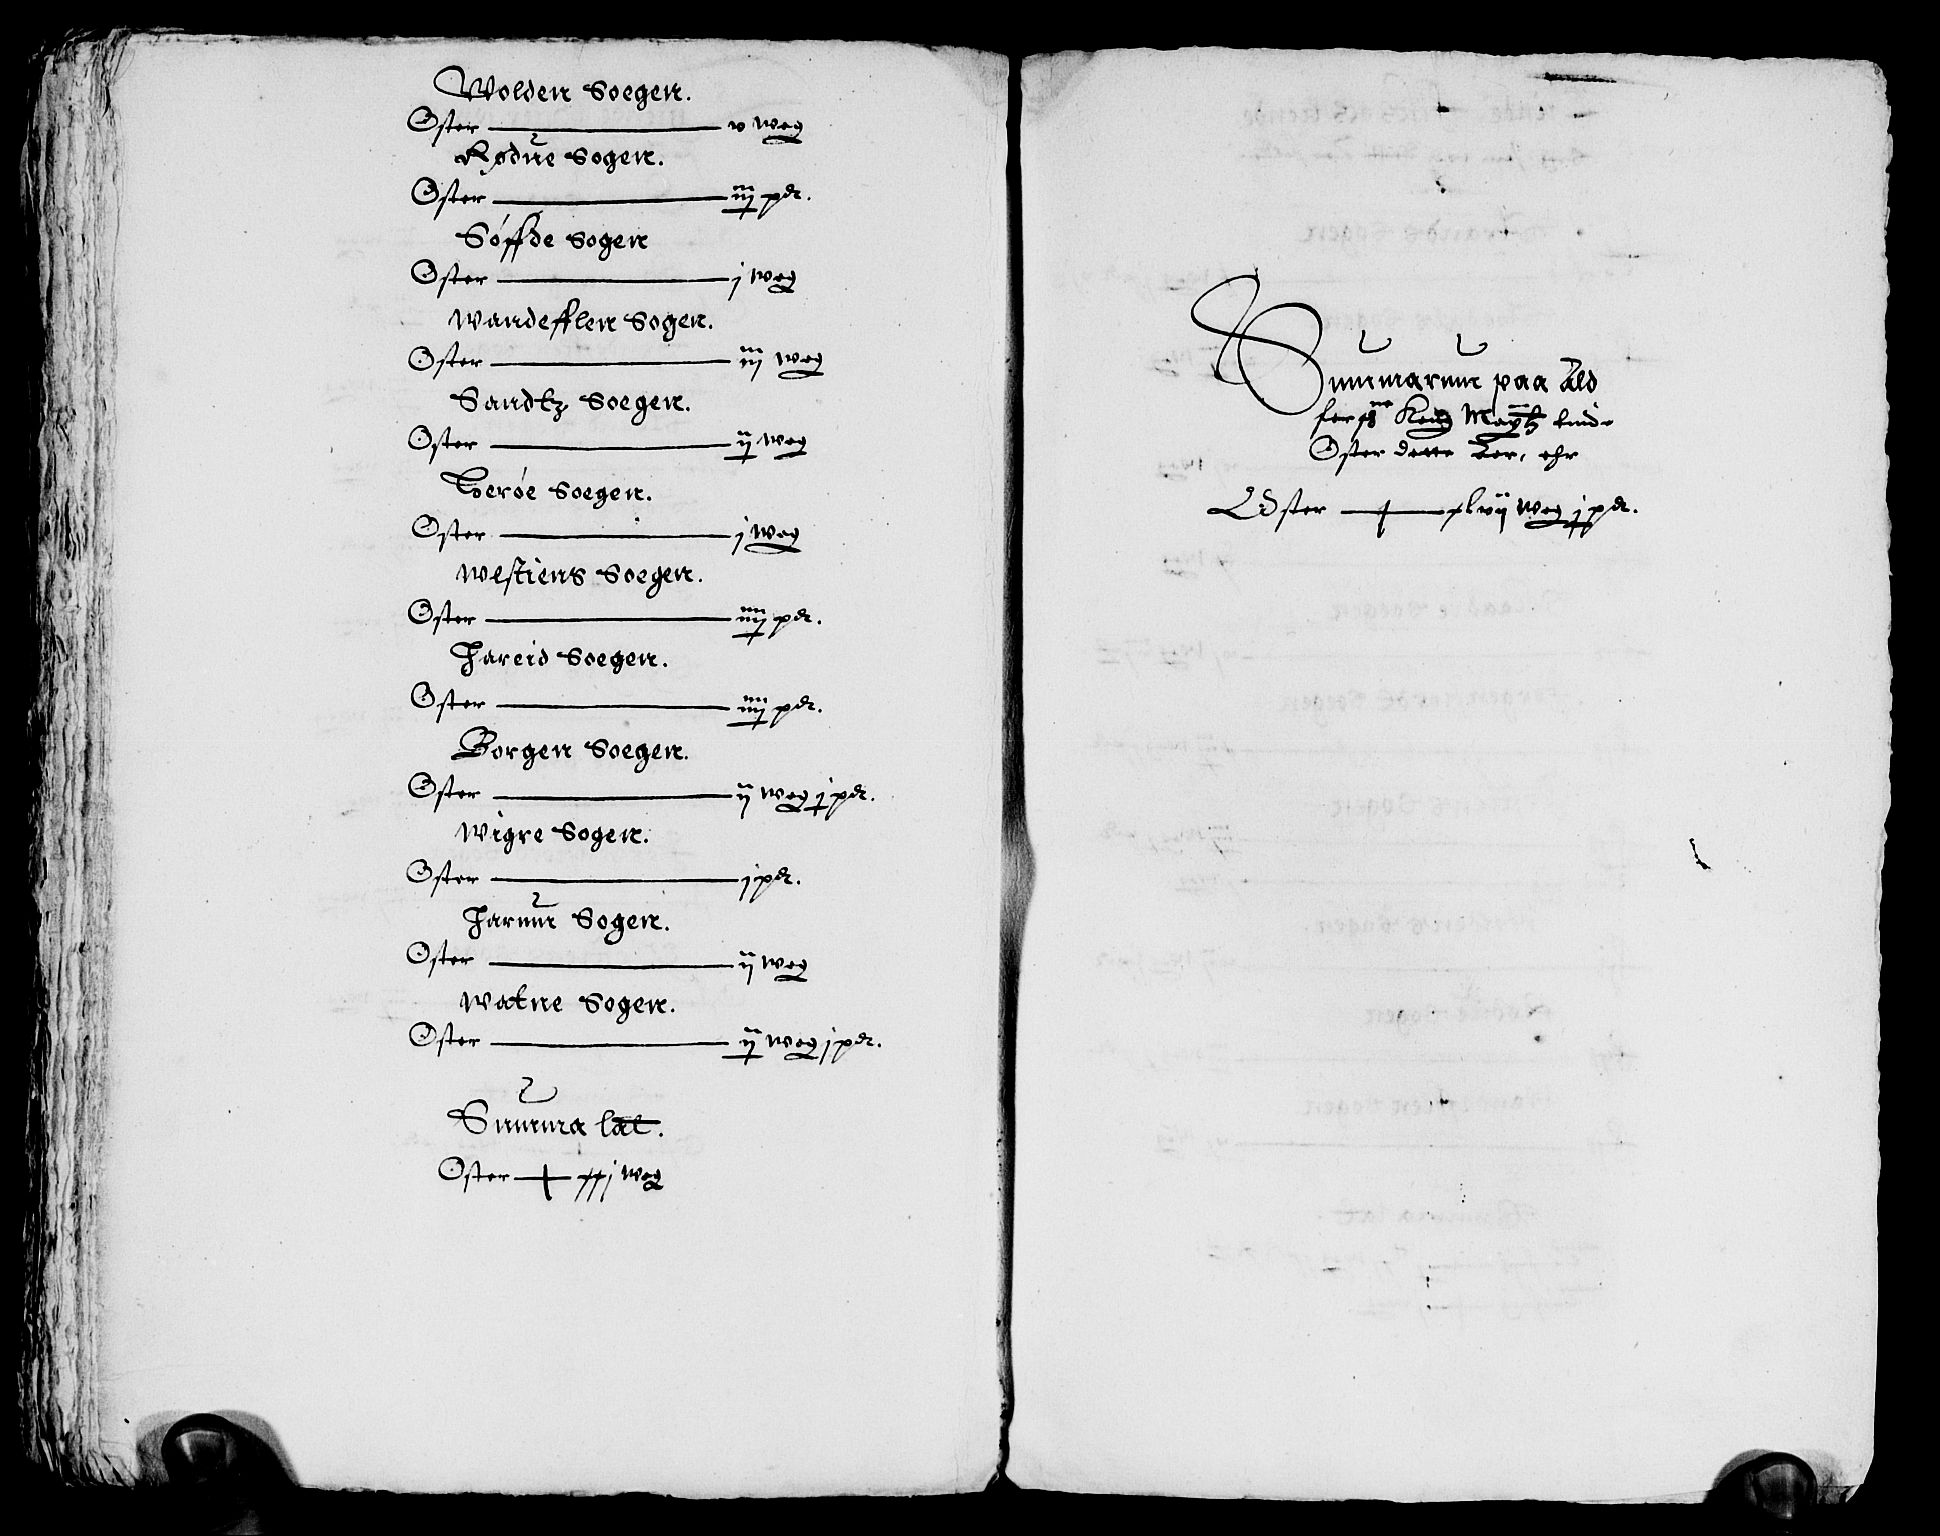 Wolden Soegen.
Oster — v weg
Rødue Sogen.
Oster — iij pdt.
Søffde Sogen
Oster — j weg
Wandefflen Sogen.
Oster — iij weg
Sandtz Soegen.
Oster — ij weg
Herøe Soegen.
Oster — j weg
Westiens Soegen.
Oster — iiij pdt.
Hareid Soegen.
Oster — iiij pdt.
Borgen Soegen.
Oster — ij weg j pdt.
Wigre Sogen.
Oster — j pdt.
Harum Sogen.
Oster — ij weg
Watne Sogen.
Oster — ij weg j pdt.
Summa lat.
Oster — xxj weg
Summarum paa Ald
Kong Maytz tiinde
Oster dette Aar, ehr
Oster — xlvij weg j pdt.